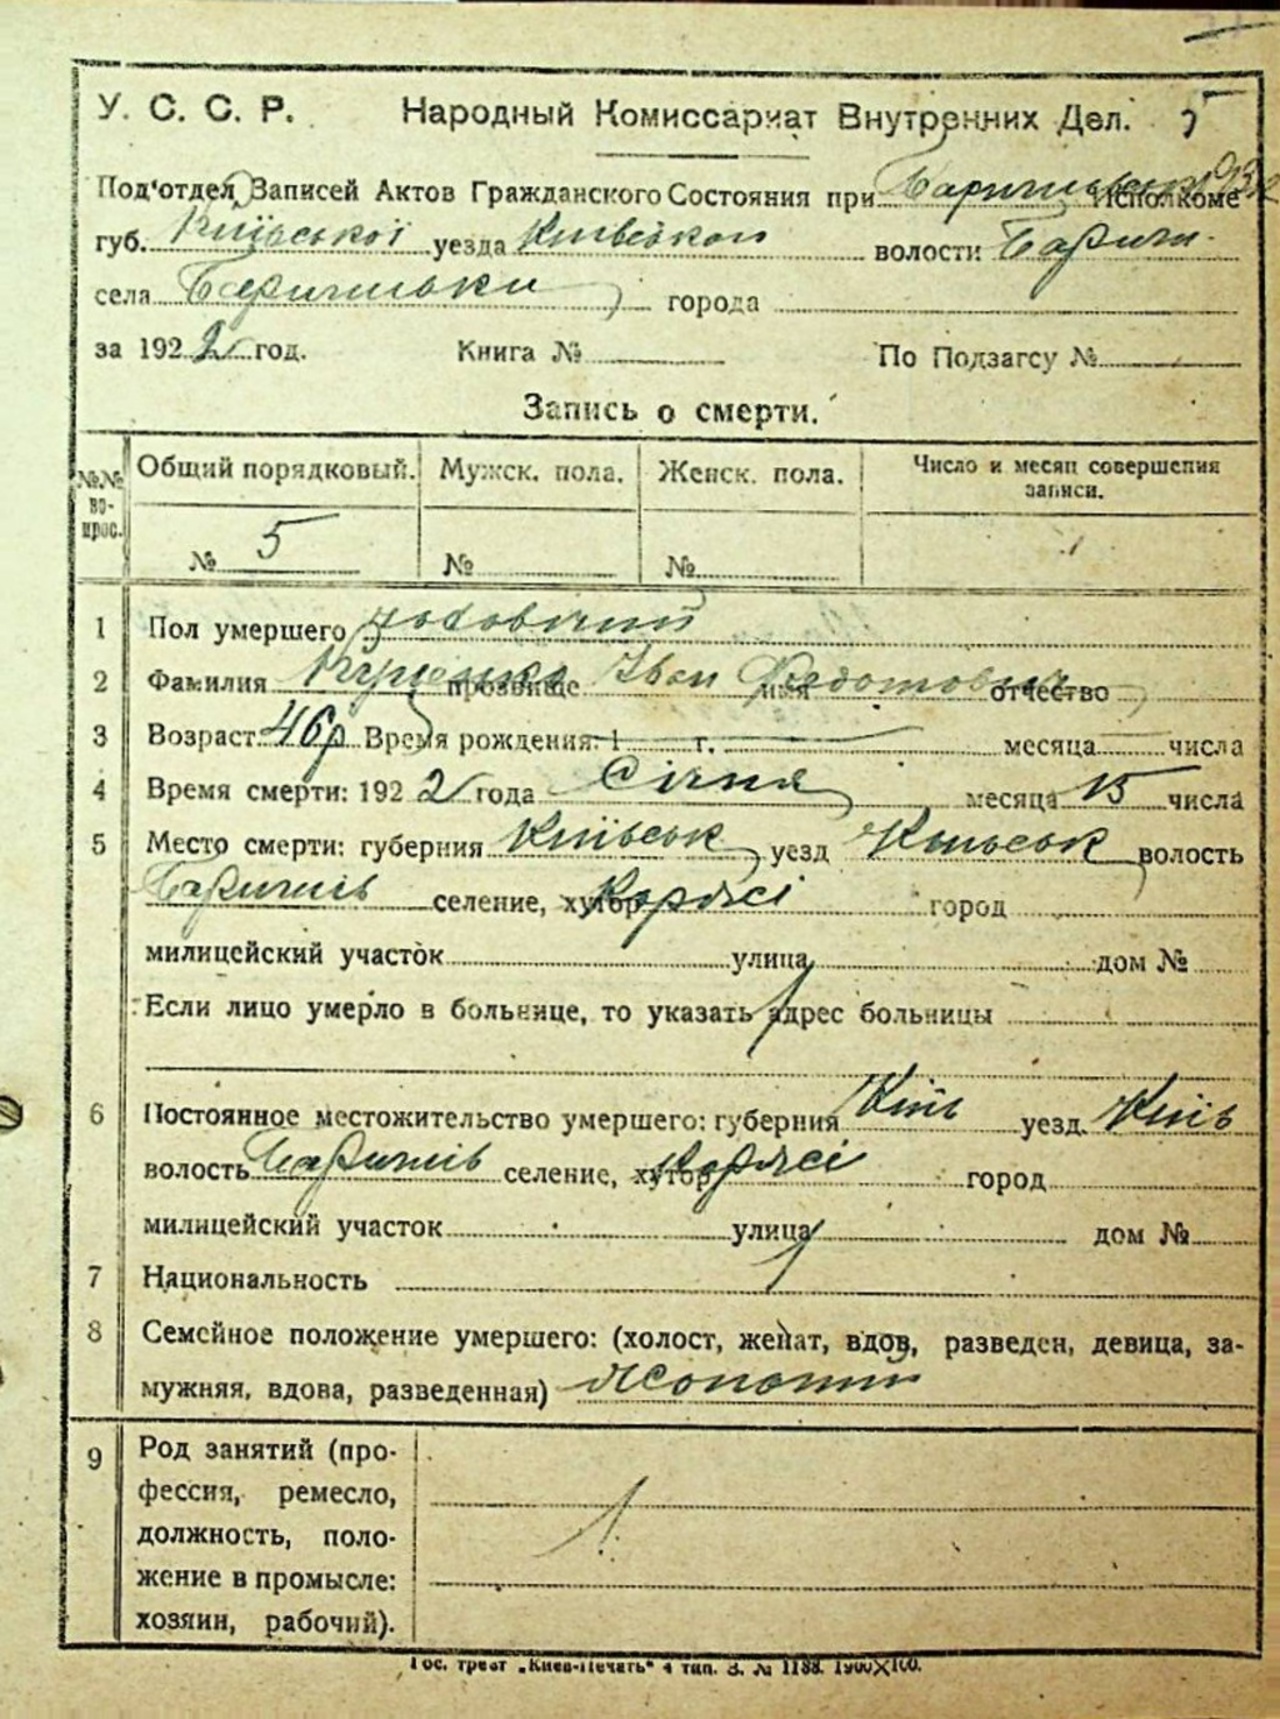 У. С. С. Р. Народный Комиссариат Внутренних Дел. 5
Под'отдел Записей Актов Гражданского Состояния при Исполкоме
губ. Київської уезда Київської волости Бариш.
села Баришівки города
за 1922 год. Книга № По Подзагсу №
Запись о смерти.
№№ вопрос. Общий порядковый. Мужск. пола. Женск. пола. Число и месяц совершения записи.
№ 5 № №
1 Пол умершего чоловічий
2 Фамилия прозвище Іван имя Федотович отчество
3 Возраст 46 р Время рождения: 1 г. месяца числа
4 Время смерти: 1922 года Січня месяца 15 числа
5 Место смерти: губерния Київськ уезд Київськ волость
Баришів селение, хутор Коржі город
милицейский участок улица дом №
Если лицо умерло в больнице, то указать адрес больницы
6 Постоянное местожительство умершего: губерния Київ уезд. Київ
волость Баришів селение, хутор Коржі город
милицейский участок улица дом №
7 Национальность
8 Семейное положение умершего: (холост, женат, вдов, разведен, девица, за-
мужняя, вдова, разведенная) жонатий
9 Род занятий (про-
фессия, ремесло,
должность, поло-
жение в промысле:
хозяин, рабочий).
Гос. трест „Киев-Печать" 4 тип. З. № 1188. 1900×100.